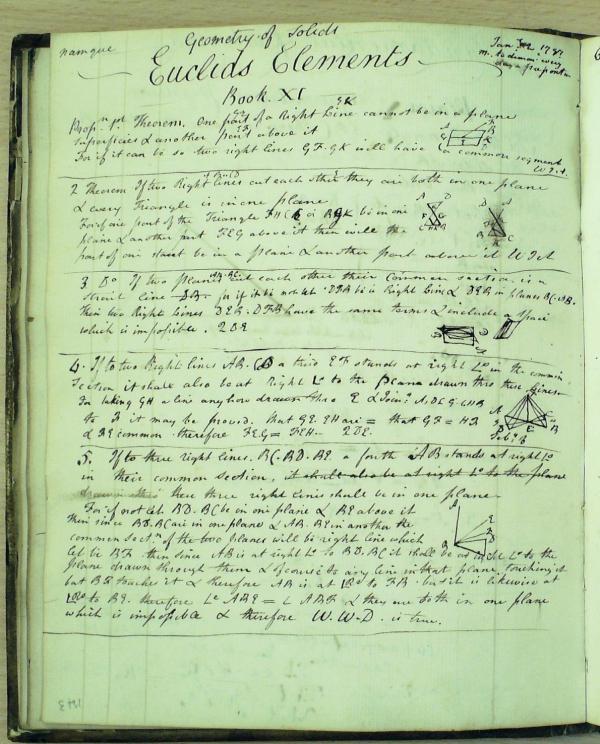 namque
Geometry of Solids
Jan 1787
Euclids Elements
Book. XI
Propn 1st Theorem. One part of a Right Line cannot be in a plane
Superficies & another part above it
For if it can be so two right lines GF. GK will have a common segment
2 Theorem If two Right Lines cut each other they are both in one plane
& every Triangle is in one plane
For if one part of the Triangle be in one
plane & another part FEG above it then will the
part of one be in a plane & another part above it
3 Do If two planes cut each other their common section is a
strait line for if it be not let DFB be a Right Line & DEB in planes BC. AB.
then two Right Lines DEB. DFB have the same terms & include a space
which is impossible. 2DE
4. If to two Right Lines AB. CD a third EF stands at right Ls in the common
Section it shall also be at Right Ls to the plane drawn thro these lines
For taking GH a line any how drawn thro E & Joing ADEG
to F it may be proved. that GE. EH are = that GF = HF
& FE common therefore FEG = FEH 2DE.
5. If to three right lines. BC. BD. BE. a fourth AB stands at right Ls
in their common section, it shall also be at right Ls to the plane
drawn thro then three right lines shall be in one plane
For if not let BD. BC be in one plane & BE above it
then since BD. BC are in one plane & AB. BE in another the
common Sectn of the two planes will be right line which
let be BF. then since AB is at right Ls to BD. BC it shall be at right Ls to the
plane drawn through them & of course to any line in that plane. touching it
but BF touches it & therefore AB is at to FB. but it is likewise at
to BE. therefore L ABE = L ABF & they are both in one plane
which is impossible & therefore W.W.D. is true.
143